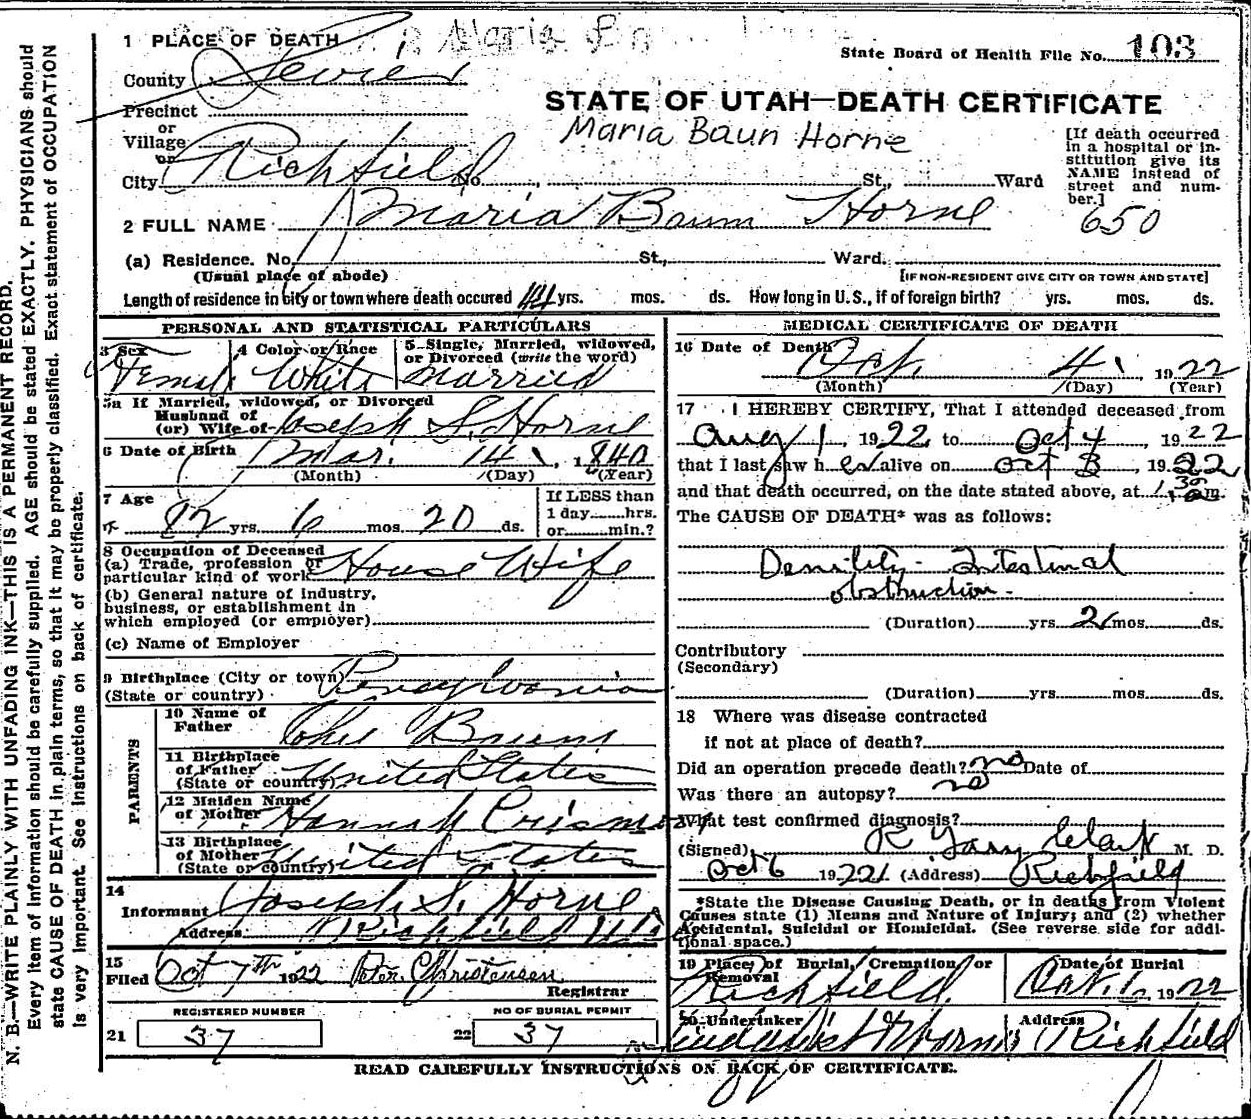 1 PLACE OF DEATH
State Board of Health File No. 103
County Sevier
Precinct
STATE OF UTAH—DEATH CERTIFICATE
or
Maria Baun Horne
Village
or
City Richfield No. , St., Ward
[If death occurred in a hospital or institution give its NAME instead of street and number.]
650
2 FULL NAME Maria Baum Horne
(a) Residence. No. St., Ward.
(Usual place of abode) [IF NON-RESIDENT GIVE CITY OR TOWN AND STATE]
Length of residence in city or town where death occured 44 yrs. mos. ds. How long in U.S., if of foreign birth? yrs. mos. ds.
PERSONAL AND STATISTICAL PARTICULARS
3 Sex 4 Color or Race 5 Single, Married, widowed, or Divorced (write the word)
Female White Married
5a If Married, widowed, or Divorced
Husband of
(or) Wife of Joseph S. Horne
6 Date of Birth Mar. 14, 1840
(Month) (Day) (Year)
7 Age If LESS than
82 yrs. 6 mos. 20 ds. 1 day......hrs. or......min.?
8 Occupation of Deceased
(a) Trade, profession or particular kind of work House Wife
(b) General nature of industry, business, or establishment in which employed (or employer)
(c) Name of Employer
9 Birthplace (City or town)
(State or country) Pennsylvania
PARENTS
10 Name of Father Baum
11 Birthplace of Father (State or country) United States
12 Maiden Name of Mother Hannah Crismon
13 Birthplace of Mother (State or country) United States
14
Informant Joseph S. Horne
Address Richfield
15
Filed Oct 7th 1922 Peter Christensen
Registrar
REGISTERED NUMBER NO OF BURIAL PERMIT
21 37 22 37
MEDICAL CERTIFICATE OF DEATH
16 Date of Death Oct. 4, 1922
(Month) (Day) (Year)
17 I HEREBY CERTIFY, That I attended deceased from
Aug 1, 1922 to Oct 4, 1922
that I last saw her alive on Oct 3, 1922
and that death occurred, on the date stated above, at 1,30 am.
The CAUSE OF DEATH* was as follows:
Intestinal
obstruction-
(Duration) yrs. 2 mos. ds.
Contributory
(Secondary)
(Duration) yrs. mos. ds.
18 Where was disease contracted
if not at place of death?
Did an operation precede death? no Date of
Was there an autopsy? no
What test confirmed diagnosis?
(Signed) R Clark M. D.
Oct 6 1922 (Address) Richfield
*State the Disease Causing Death, or in deaths from Violent
Causes state (1) Means and Nature of Injury; and (2) whether
Accidental, Suicidal or Homicidal. (See reverse side for addi-
tional space.)
19 Place of Burial, Cremation or Removal Date of Burial
Richfield. Oct. 1922
20 Undertaker Address
Richfield
READ CAREFULLY INSTRUCTIONS ON BACK OF CERTIFICATE.
N. B.—WRITE PLAINLY WITH UNFADING INK—THIS IS A PERMANENT RECORD.
Every item of information should be carefully supplied. AGE should be stated EXACTLY. PHYSICIANS should
state CAUSE OF DEATH in plain terms, so that it may be properly classified. Exact statement of OCCUPATION
is very important. See instructions on back of certificate.